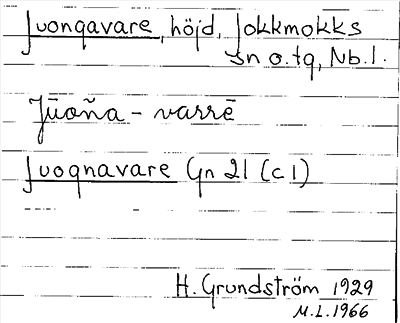 Juongavare, höjd, Jokkmokks
sn o. tg, Nb. l.
Jūoña - varrē
Juognavare Gn 21 (c1)
H. Grundström 1929
M.L. 1966